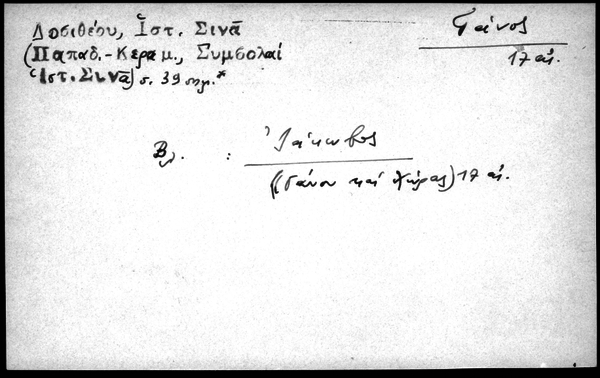 Δοσιθέου, Ἱστ. Σινᾶ
(Παπαδ.-Κεραμ., Συμβολαί
Ἱστ. Σινᾶ) σ. 39 σημ.*
Γιάνος
17 αἰ.
Βλ. : Ἰάκωβος
(Γιάνου καὶ Κύρας) 17 αἰ.